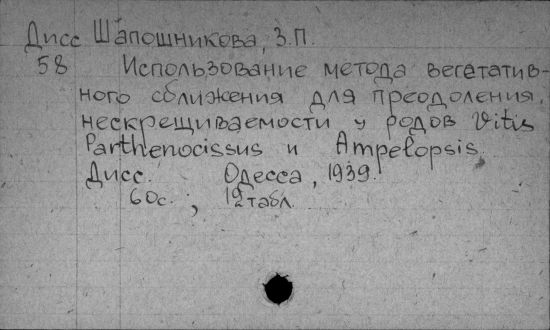 Дисс Шапошникова, З.П.
58 Использование метода вегетатив-
ного сближения для преодоления
нескрещиваемости у родов Vitis
Parthenocissus и Ampelopsis.
Дисс. Одесса, 1939.
60с.; 12табл.